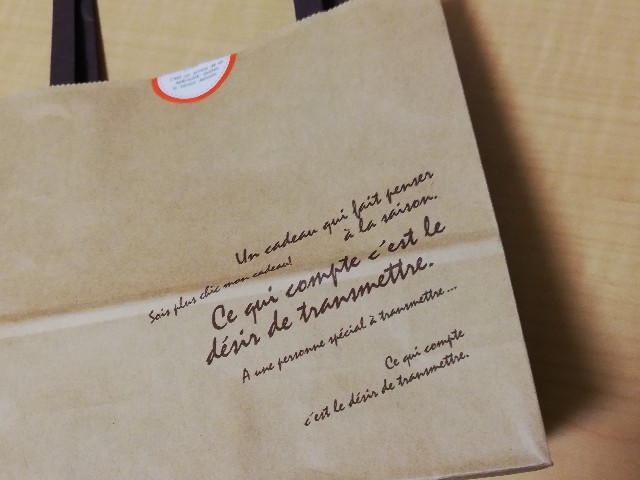 Un cadeau qui fait penser
à la saison.
Sois plus chic mon cadeau!
Ce qui compte c'est le
désir de transmettre.
A une personne spécial à transmettre...
Ce qui compte
c'est le désir de transmettre.